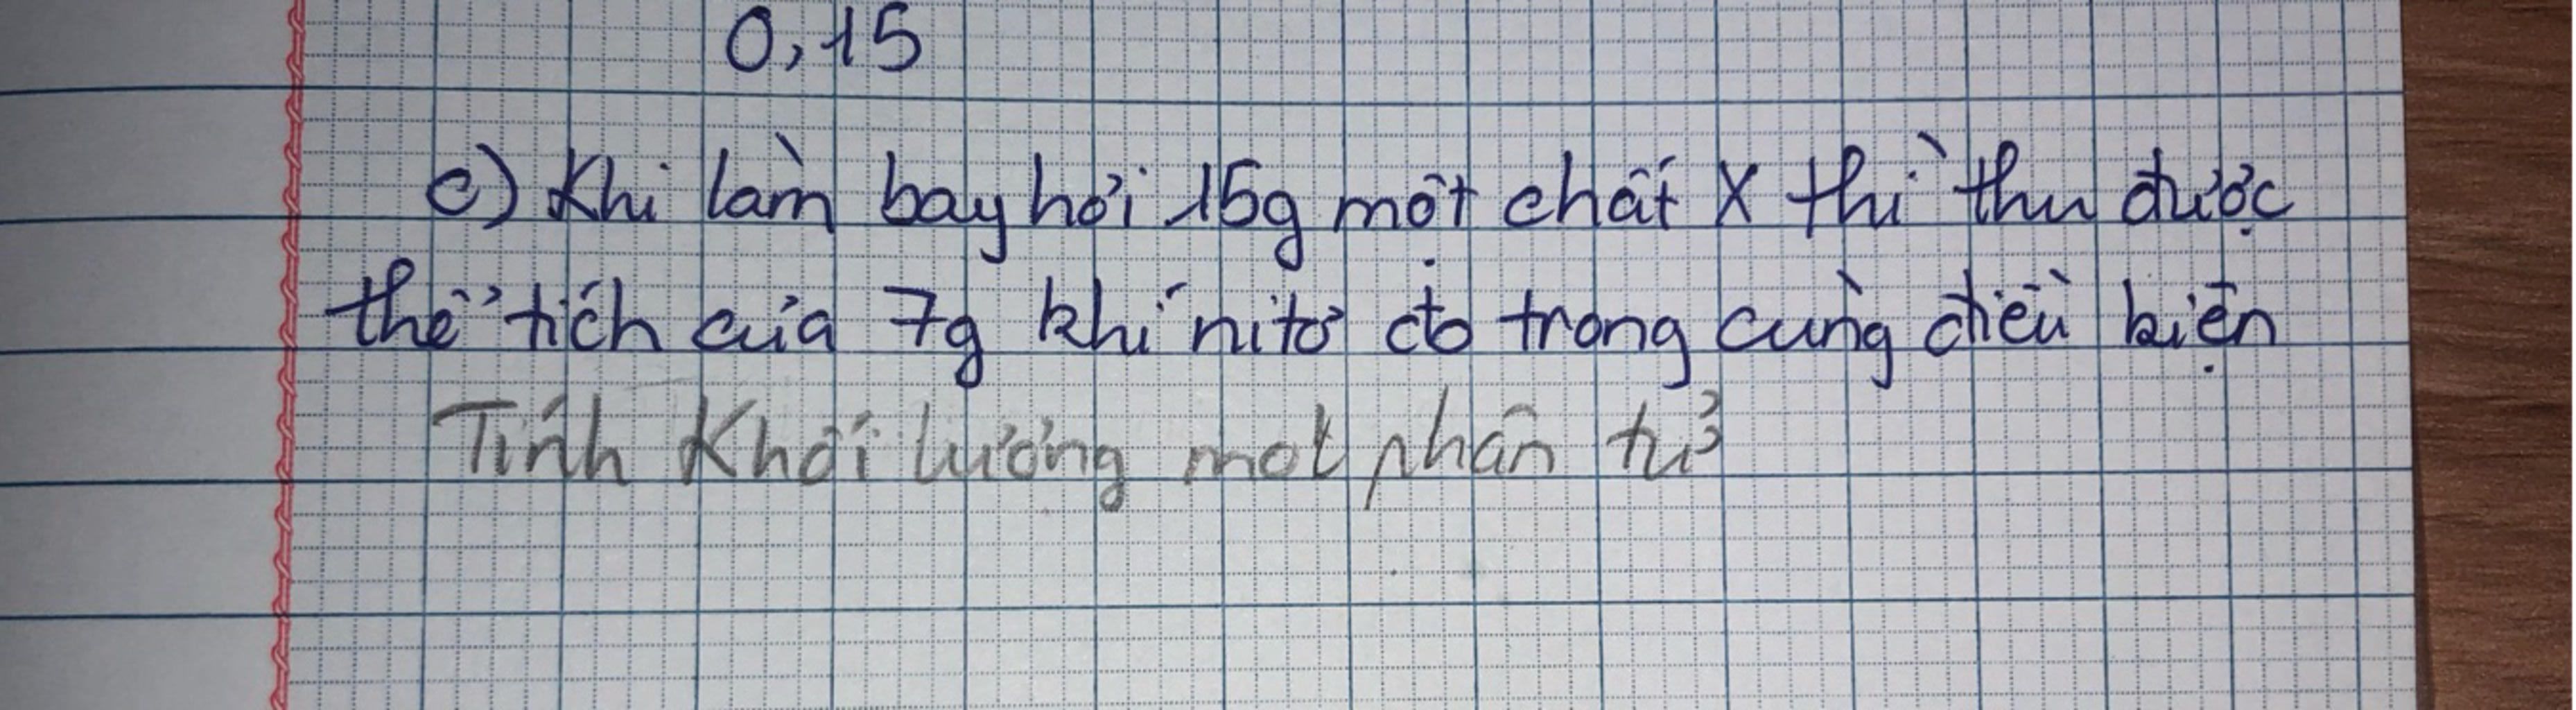 0,15
c) Khi làm bay hơi 15g một chất X thì thu được
thể tích của 7g khí nitơ đo trong cùng điều kiện
Tính Khối lượng mol phân tử